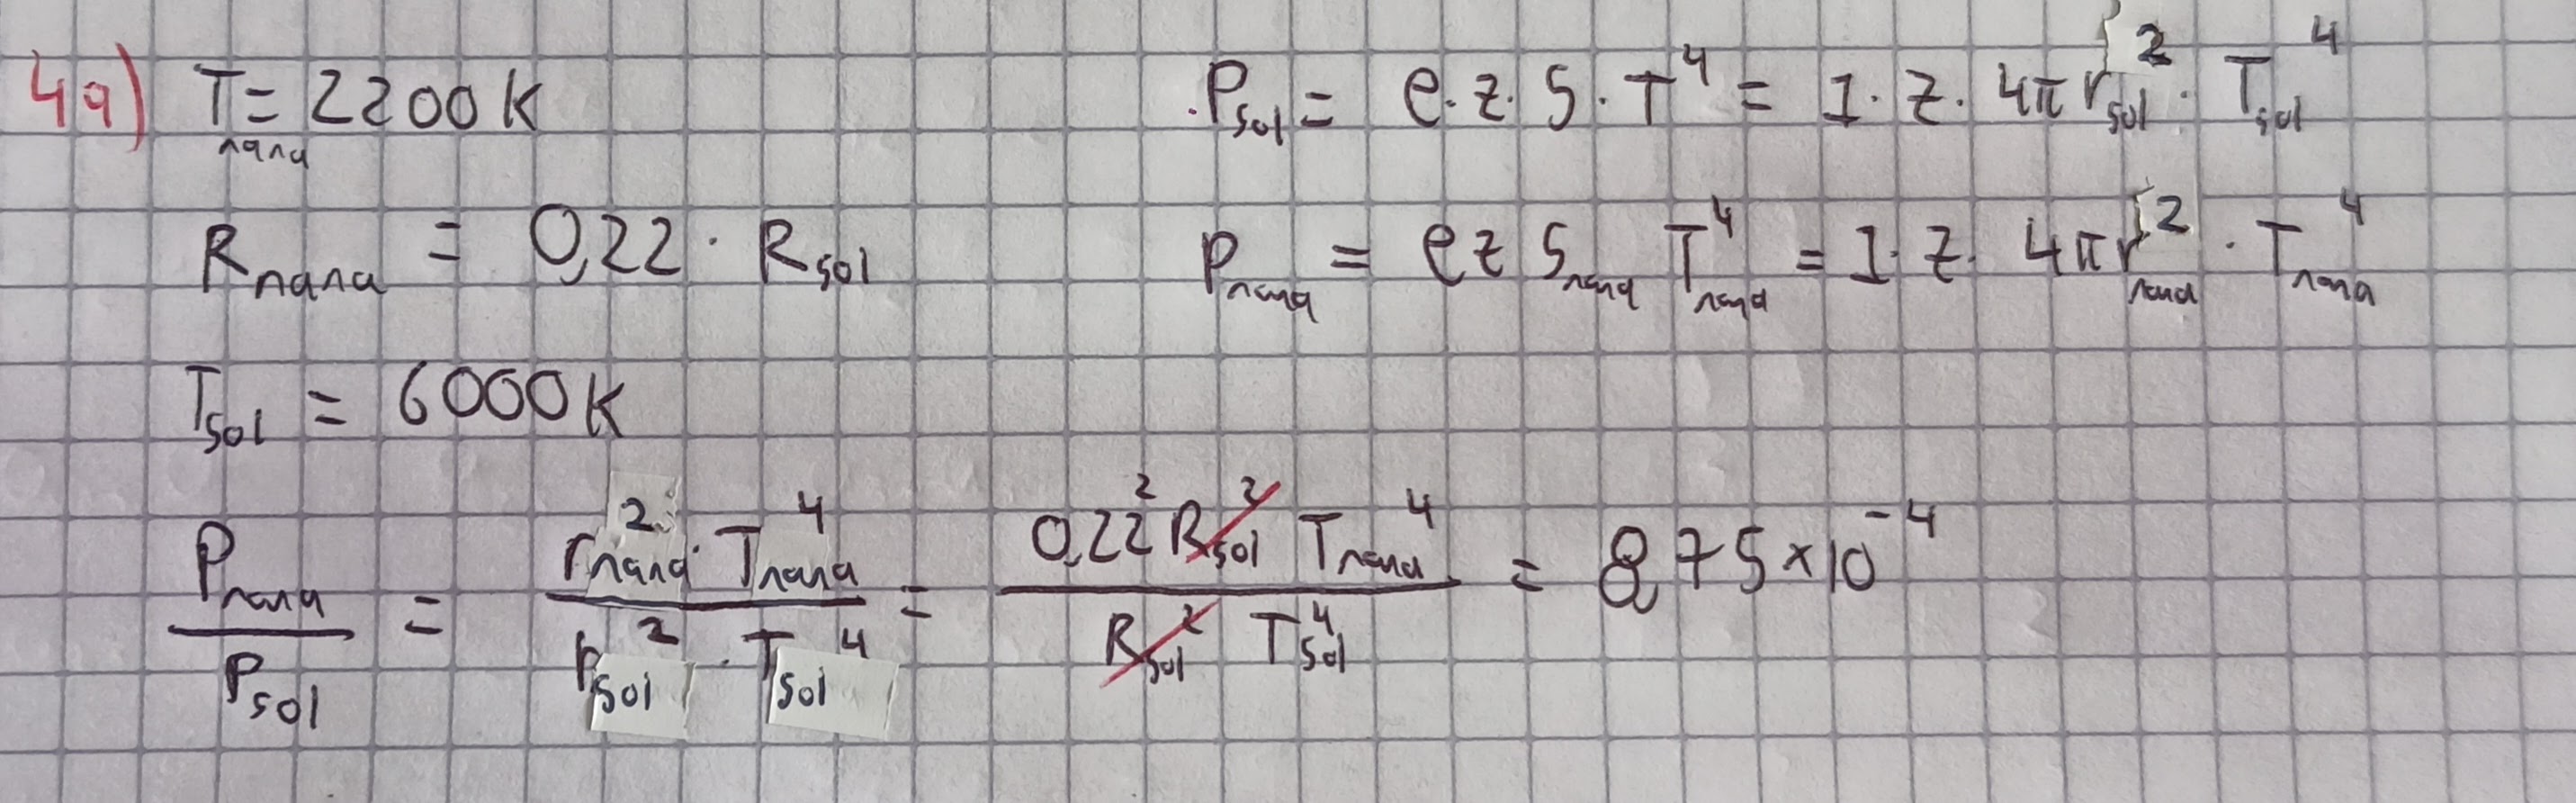 4a) T_nana = 2200K
R_nana = 0,22 · R_sol
T_sol = 6000K
P_sol = e·z·S·T⁴ = 1·z·4πr_sol²·T_sol⁴
P_nana = e z S_nana T_nana⁴ = 1·z·4πr_nana²·T_nana⁴
P_nana / P_sol = r_nana²·T_nana⁴ / r_sol²·T_sol⁴ = 0,22² R_sol² T_nana⁴ / R_sol² T_sol⁴ = 8,75×10⁻⁴